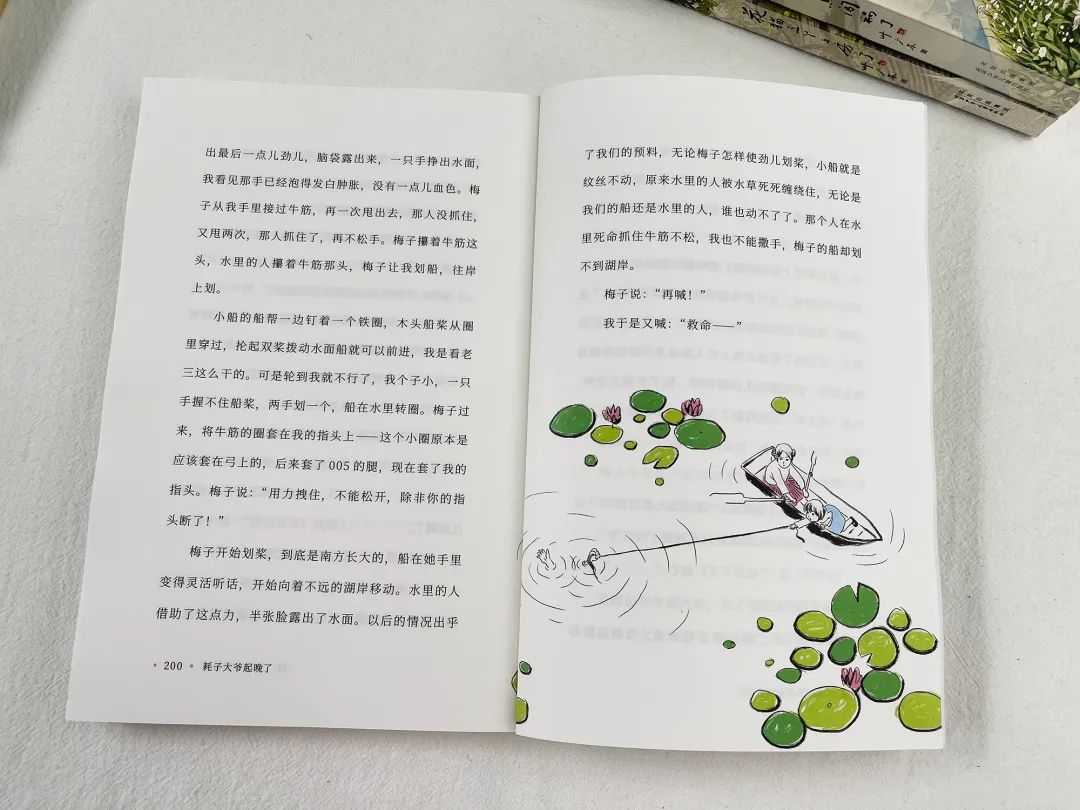 出最后一点儿劲儿，脑袋露出来，一只手挣出水面，
我看见那手已经泡得发白肿胀，没有一点儿血色。梅
子从我手里接过牛筋，再一次甩出去，那人没抓住，
又甩两次，那人抓住了，再不松手。梅子攥着牛筋这
头，水里的人攥着牛筋那头，梅子让我划船，往岸
上划。
小船的船帮一边钉着一个铁圈，木头船桨从圈
里穿过，抡起双桨拨动水面船就可以前进，我是看老
三这么干的。可是轮到我就不行了，我个子小，一只
手握不住船桨，两手划一个，船在水里转圈。梅子过
来，将牛筋的圈套在我的指头上——这个小圈原本是
应该套在弓上的，后来套了 005 的腿，现在套了我的
指头。梅子说：“用力拽住，不能松开，除非你的指
头断了！”
梅子开始划桨，到底是南方长大的，船在她手里
变得灵活听话，开始向着不远的湖岸移动。水里的人
借助了这点力，半张脸露出了水面。以后的情况出乎
200 耗子大爷起晚了
了我们的预料，无论梅子怎样使劲儿划桨，小船就是
纹丝不动，原来水里的人被水草死死缠绕住，无论是
我们的船还是水里的人，谁也动不了了。那个人在水
里死命抓住牛筋不松，我也不能撒手，梅子的船却划
不到湖岸。
梅子说：“再喊！”
我于是又喊：“救命——”
花猫三丫上房了
叶广芩 著
闯祸了